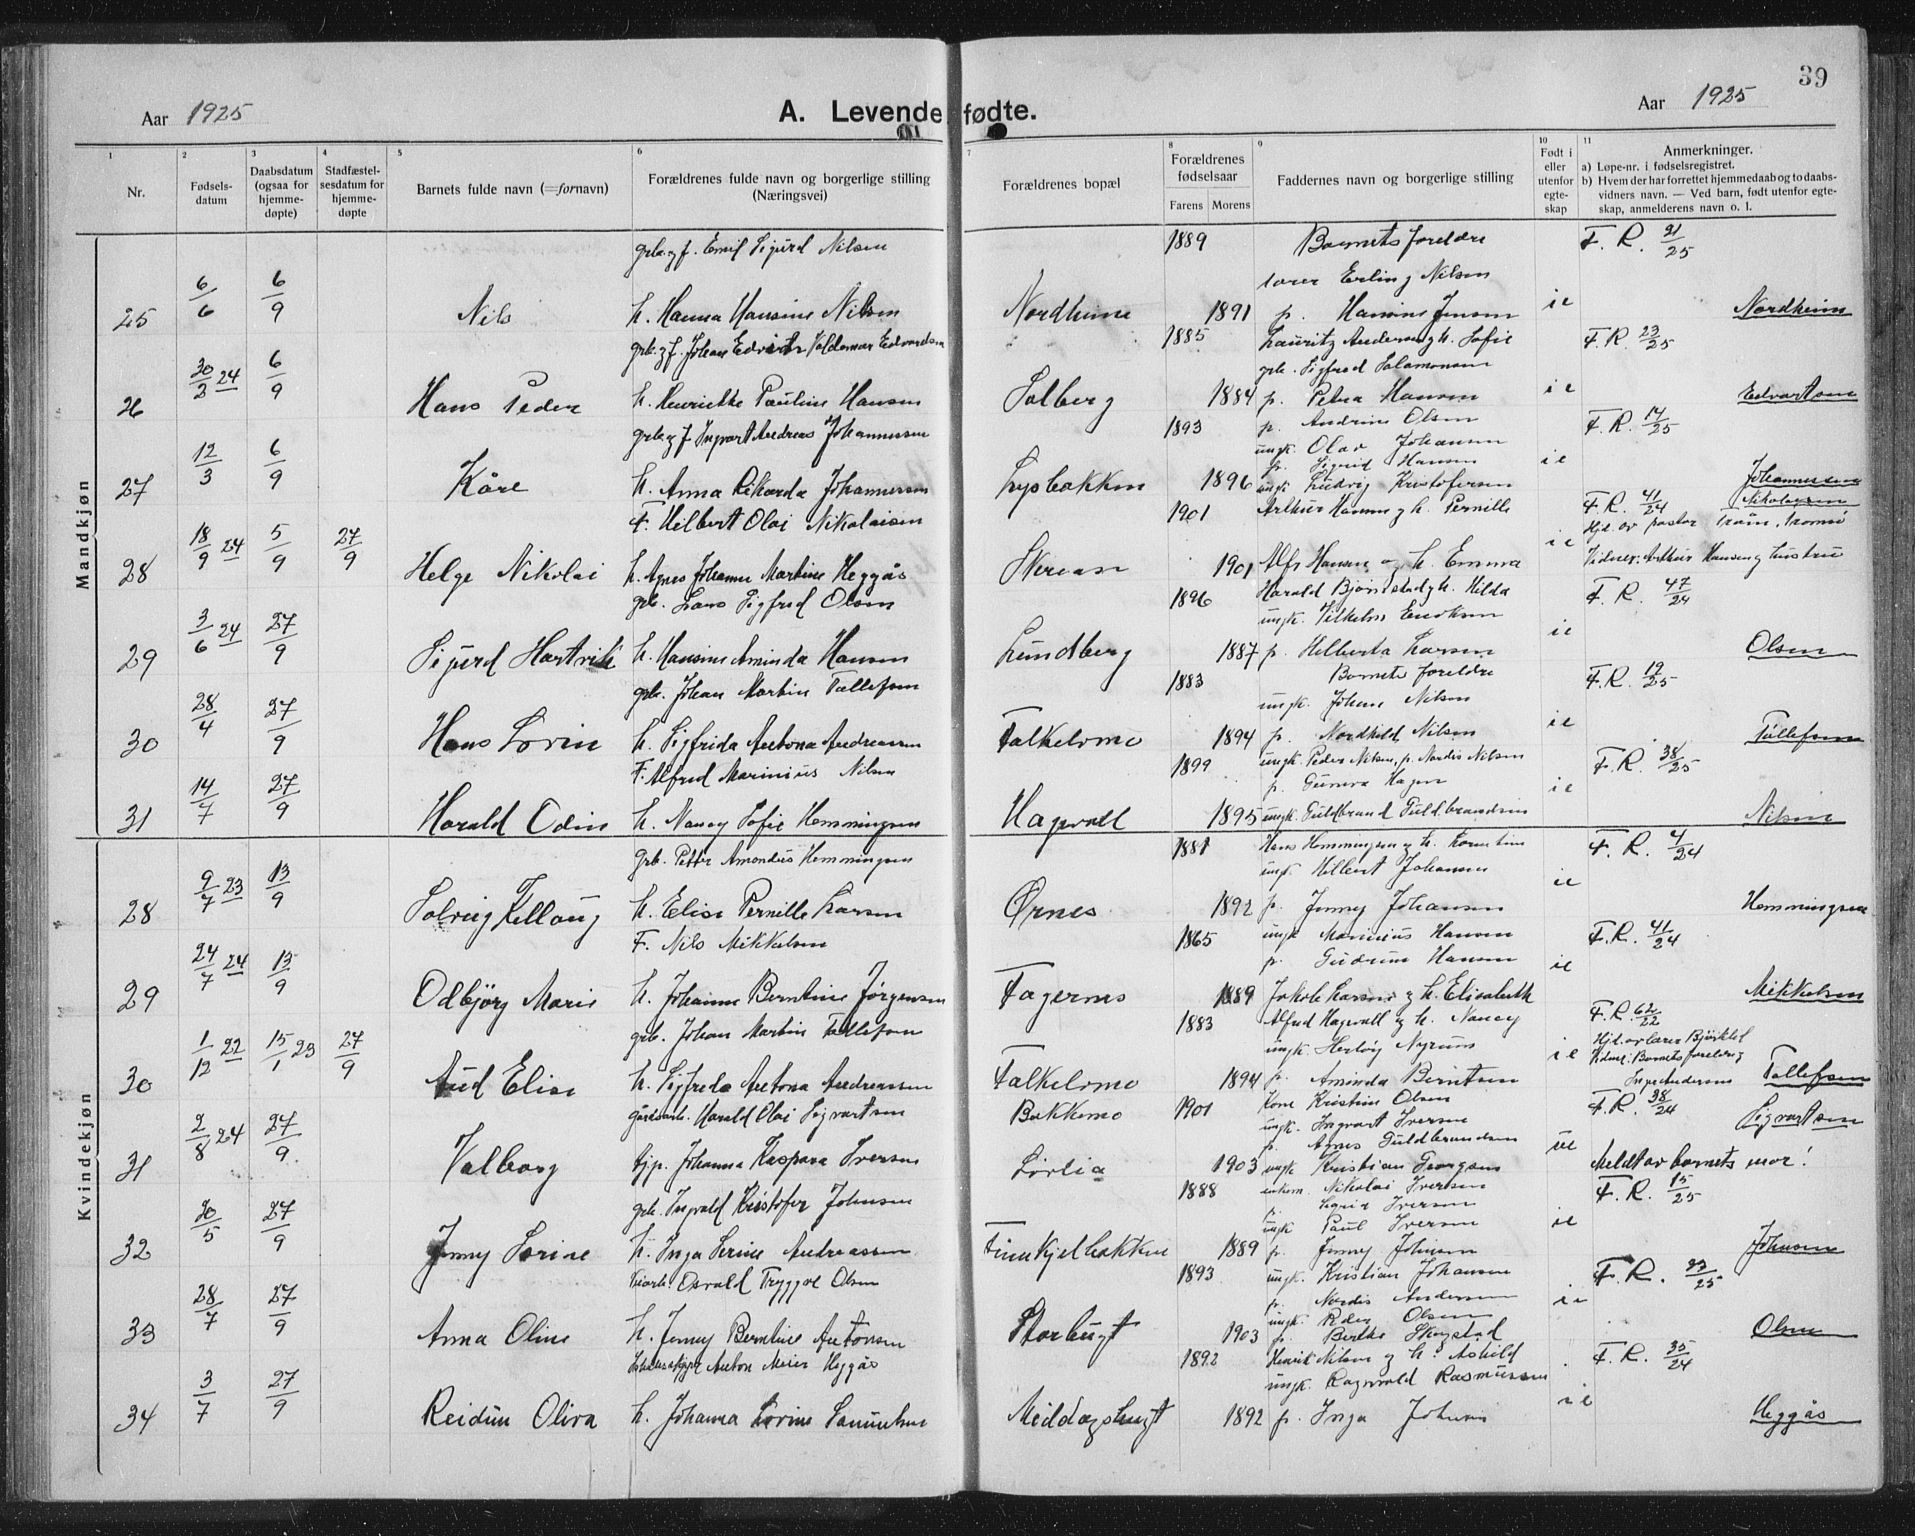 39
Aar 1925
A. Levende fødte.
Aar 1925
1 2 3 4 5 6 7 8 9 10 11
Nr.
Fødsels-
datum
Daabsdatum
(ogsaa for
hjemme-
døpte)
Stadfæstel-
sesdatum for
hjemme-
døpte
Barnets fulde navn (=fornavn)
Forældrenes fulde navn og borgerlige stilling
(Næringsvei)
Forældrenes bopæl
Forældrenes
fødselsaar
Farens Morens
Faddernes navn og borgerlige stilling
Født i
eller
utenfor
egte-
skap
Anmerkninger.
a) Løpe-nr. i fødselsregistret.
b) Hvem der har forrettet hjemmedaab og to daabs-
vidners navn. — Ved barn, født utenfor egte-
skap, anmelderens navn o. l.
Mandkjøn
grb. g f. Emil Sigurd Nilsen 1889 Barnets foreldre F. R. 31/25
Erling Nilsen
25 6/6 6/9 Nils h. Hanna Hansine Nilsen Nordheim 1891 p. Hansine Jensen ie Nordheim
grb. g f. Johan Valdemar Edvardsen 1885 Lauritz Andersen g h. Sofie F. R. 23/25
grb. Sigfred Salamonsen
26 30/2 24 6/9 Hans Peder h. Henriette Pauline Hansen Solberg 1884 p. Petra Hansen ie Edvartsen
grb. g f Ingvart Andreas Johannessen 1893 p. Andrine Olsen F. R. 14/25
ungk. Olav Johansen
27 12/3 6/9 Kåre h. Anna Rikarda Johannessen Lysbakken 1896 p. Sigrid Hansen ie Johannessen
ungk. Ludvig Kristofersen
F. Hilbert Olai Nikolaisen 1901 Arthur Hansen g h. Pernille F. R. 41/24 Nikolaysen
Hjd. av pastor Tromsö
28 18/9 24 5/9 27/9 Helge Nikolai h. Agnes Johanne Martine Heggås 1901 Alfr Hansen og h. Emma ie Vidner: Arthur Hansen g hustru
grb. Lars Sigfred Olsen 1896 Harald Bjørnstad g h. Hilda F. R. 47/24
ungk. Vilhelm
29 3/6 24 27/9 Sigurd Hartvik h. Hansine Aminda Hansen Lundberg 1887 p. Helberta Larsen ie Olsen
grb. Johan Martin Tollefsen 1883 Barnets foreldre F. R. 12/25
ungk. Johan Nilsen
30 28/4 27/9 Hans Lorin h. Sigfrida Antona Andreassen Falkelomo 1894 p. Nordhild Nilsen ie Tollefsen
F. Alfred Marinius Nilsen 1899 ungk. Peder Nilsen, p. Nordis Nilsen F. R. 38/25
p. Gunvor Hagen
31 14/7 27/9 Harald Odin h. Nancy Sofie Hemmingsen Hagevoll 1895 ungk. Guldbrand Guldbrandsen ie Nilsen
Kvindekjøn
grb. Petter Amondus Hemmingsen 1881 Hans Hemmingsen g h. F. R. 4/24
ungk. Hilbert Johansen
28 9/7 23 13/9 Solveig h. Elise Pernille Larsen Ørnes 1892 p. Jenny Johansen ie Hemmingsen
F. Nils Mikkelsen 1865 ungk Marinius Hansen F. R. 41/24
p. Gudrun Hansen
29 24/7 24 13/9 Odbjörg Marie h. Johanne Berntine Jørgensen Fagernes 1889 Jakob Larsen g h. Elisabeth ie Mikkelsen
grb. Johan Martin Tollefsen 1883 Alfred Hagevoll og h. Nancy F. R. 62/22
ungk. Hjd. av lærer Bjørklid
30 1/12 22 15/1 23 27/9 Aud Elise h. Sigfrida Antona Andreassen Falkelomo 1894 p. Aminda Berntsen ie Vidner: Barnets foreldre g
Inga Andersen Tollefsen
gårdsarb. Harald Olai Sigvartsen Bakkemo 1901 Kone Kristine Olsen F. R. 38/24 Sigvartsen
ungk. Ingvart Iversen
31 2/8 24 27/9 Valborg tjp. Johanna Kaspara Iversen Lørlia 1903 p. Agnes Guldbrandsen ue Meldt av barnets mor!
ungk Kristian Georgsen
grb. Ingvald Kristofer Johnsen 1888 enkem. Nikolai Iversen F. R. 15/25
p. Iversen
32 20/5 27/9 Jenny Sorine h. Inga Serine Andreassen Finnkjelbakken 1889 ungk Paul Iversen ie Johnsen
p. Jenny Johnsen
Osvald Tryggve Olsen 1893 ungk. Kristian Johansen F. R. 23/25
p. Nordis Andersen
33 28/7 27/9 Anna Oline h. Jenny Berntine Antonsen Storbugt 1903 ungk. Peder Olsen ie Olsen
p. Berthe Skogstad
Anton Meier Heggås 1892 Henrik Nilsen g h. Ashild F. R. 35/24
ungk. Ragnvald Rasmussen
34 3/7 27/9 Reidun Oliva h. Johanna Lorine Middagsbugt 1892 p. Inga Johnsen ie Heggås